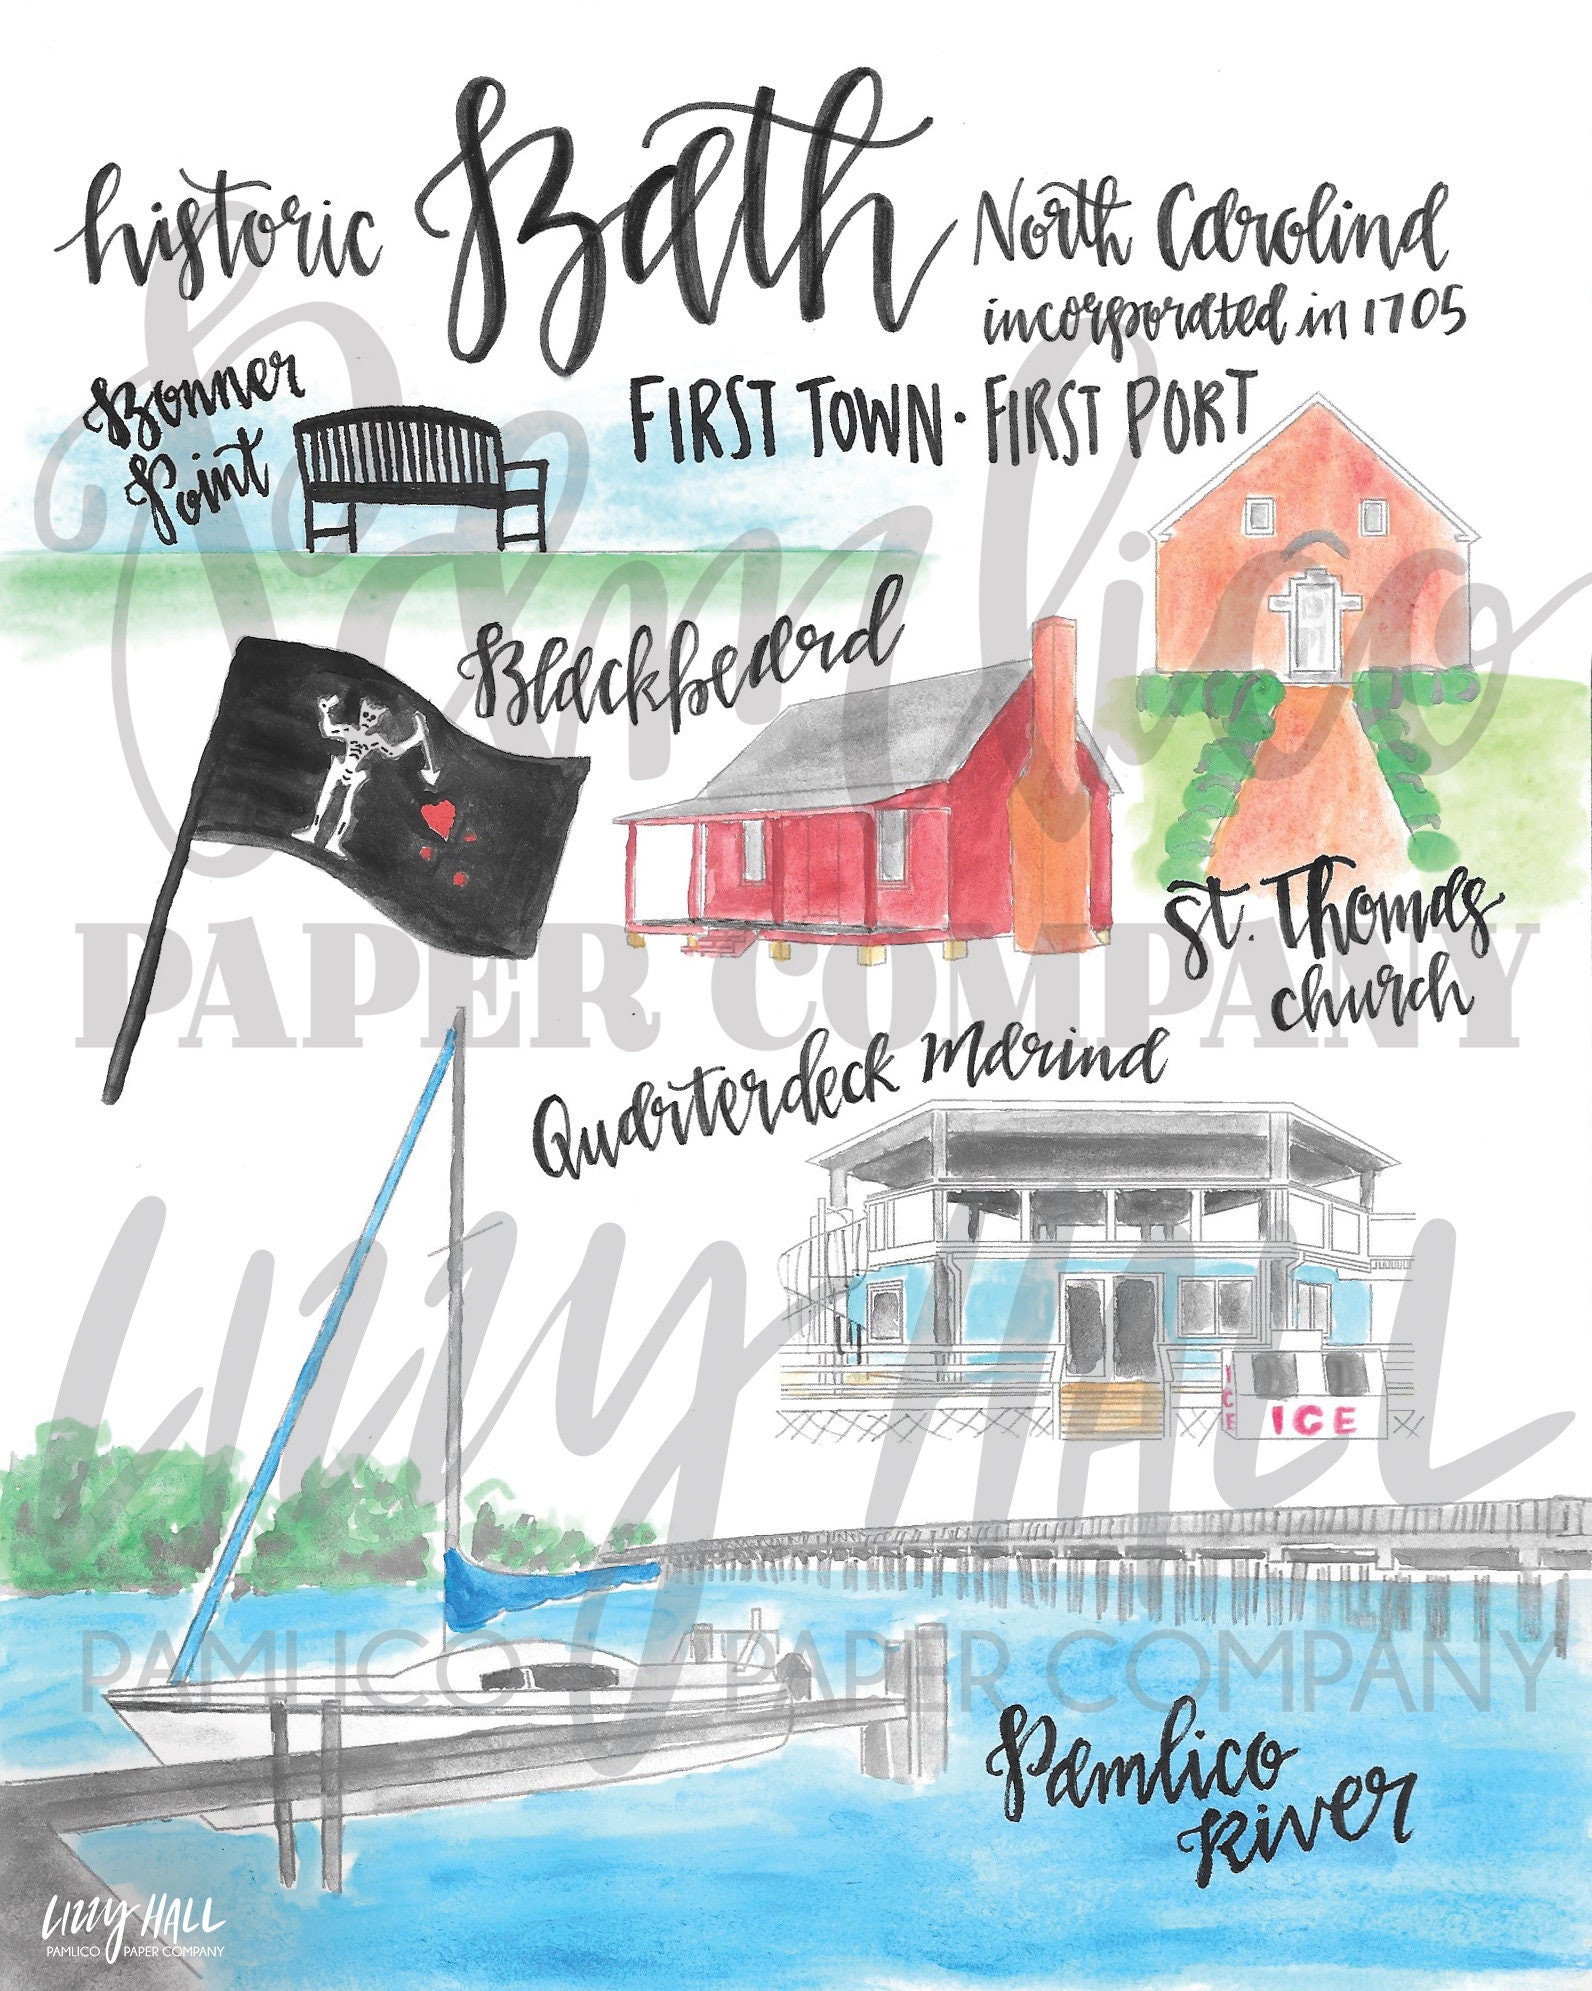 historic Bath North Carolina
incorporated in 1705
FIRST TOWN · FIRST PORT
Bonner
Point
Blackbeard
St. Thomas
church
Quarterdeck Marina
ICE
ICE
Pamlico
River
Pamlico
PAPER COMPANY
LIZZY HALL
PAMLICO PAPER COMPANY
LIZZY HALL
PAMLICO PAPER COMPANY